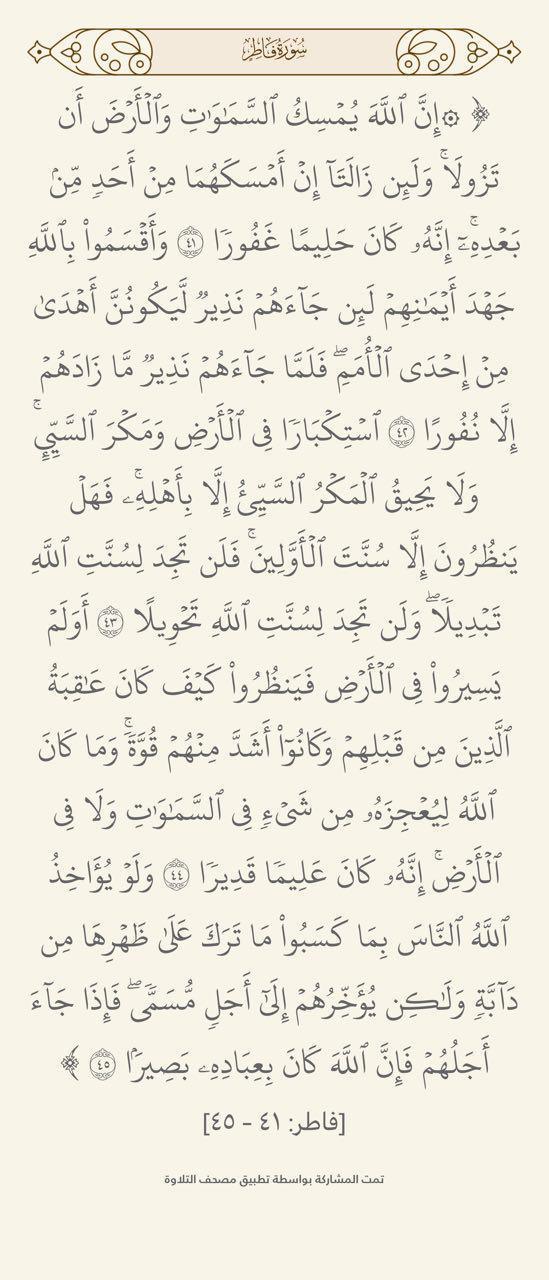 سُورَةُ فَاطِرٍ
﴿ ۞إِنَّ ٱللَّهَ يُمۡسِكُ ٱلسَّمَٰوَٰتِ وَٱلۡأَرۡضَ أَن
تَزُولَاۚ وَلَئِن زَالَتَآ إِنۡ أَمۡسَكَهُمَا مِنۡ أَحَدٖ مِّنۢ
بَعۡدِهِۦٓۚ إِنَّهُۥ كَانَ حَلِيمًا غَفُورٗا ٤١ وَأَقۡسَمُواْ بِٱللَّهِ
جَهۡدَ أَيۡمَٰنِهِمۡ لَئِن جَآءَهُمۡ نَذِيرٞ لَّيَكُونُنَّ أَهۡدَىٰ
مِنۡ إِحۡدَى ٱلۡأُمَمِۖ فَلَمَّا جَآءَهُمۡ نَذِيرٞ مَّا زَادَهُمۡ
إِلَّا نُفُورًا ٤٢ ٱسۡتِكۡبَارٗا فِي ٱلۡأَرۡضِ وَمَكۡرَ ٱلسَّيِّيِٕۚ
وَلَا يَحِيقُ ٱلۡمَكۡرُ ٱلسَّيِّئُ إِلَّا بِأَهۡلِهِۦۚ فَهَلۡ
يَنظُرُونَ إِلَّا سُنَّتَ ٱلۡأَوَّلِينَۚ فَلَن تَجِدَ لِسُنَّتِ ٱللَّهِ
تَبۡدِيلٗاۖ وَلَن تَجِدَ لِسُنَّتِ ٱللَّهِ تَحۡوِيلًا ٤٣ أَوَلَمۡ
يَسِيرُواْ فِي ٱلۡأَرۡضِ فَيَنظُرُواْ كَيۡفَ كَانَ عَٰقِبَةُ
ٱلَّذِينَ مِن قَبۡلِهِمۡ وَكَانُوٓاْ أَشَدَّ مِنۡهُمۡ قُوَّةٗۚ وَمَا كَانَ
ٱللَّهُ لِيُعۡجِزَهُۥ مِن شَيۡءٖ فِي ٱلسَّمَٰوَٰتِ وَلَا فِي
ٱلۡأَرۡضِۚ إِنَّهُۥ كَانَ عَلِيمٗا قَدِيرٗا ٤٤ وَلَوۡ يُؤَاخِذُ
ٱللَّهُ ٱلنَّاسَ بِمَا كَسَبُواْ مَا تَرَكَ عَلَىٰ ظَهۡرِهَا مِن
دَآبَّةٖ وَلَٰكِن يُؤَخِّرُهُمۡ إِلَىٰٓ أَجَلٖ مُّسَمّٗىۖ فَإِذَا جَآءَ
أَجَلُهُمۡ فَإِنَّ ٱللَّهَ كَانَ بِعِبَادِهِۦ بَصِيرَۢا ٤٥ ﴾
[فاطر: ٤١ - ٤٥]
تمت المشاركة بواسطة تطبيق مصحف التلاوة